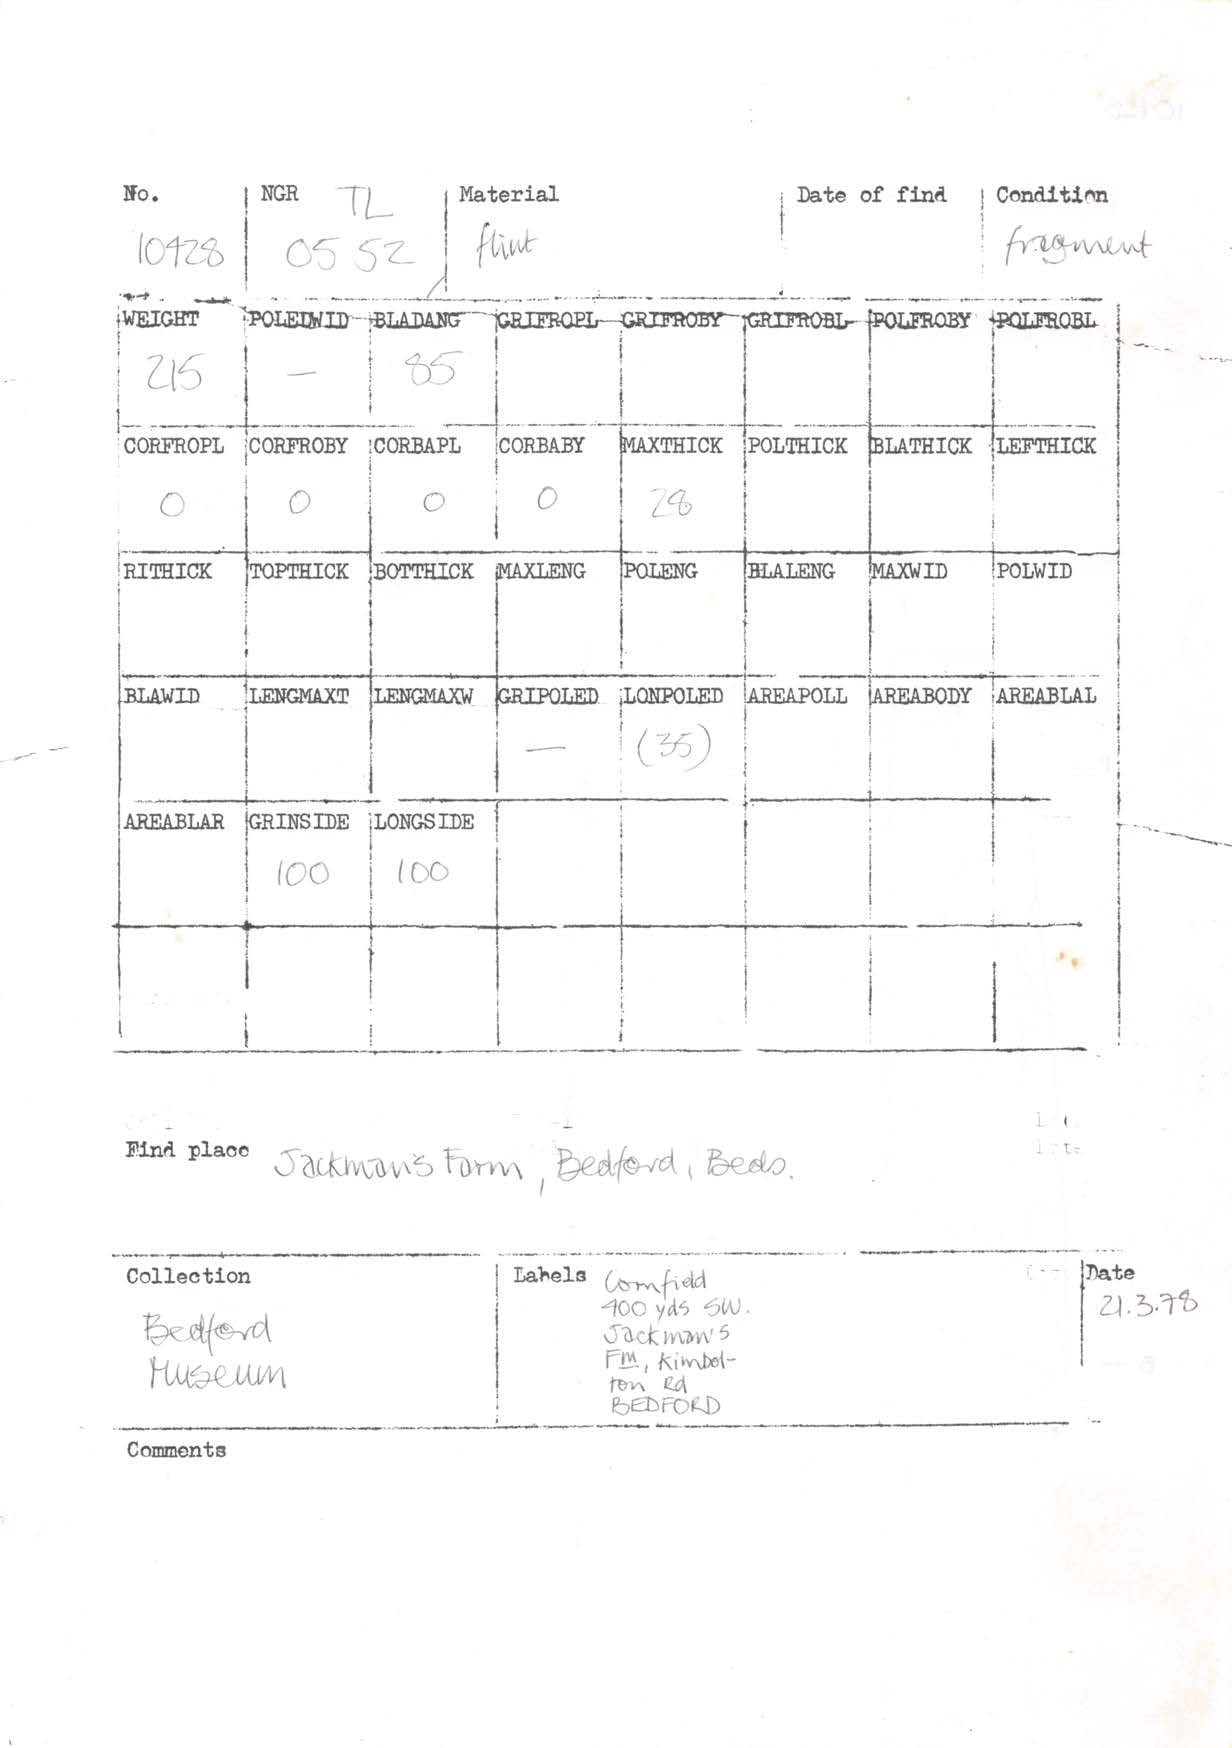 No. NGR TL Material Date of find Condition
10428 05 52 flint fragment
WEIGHT POLEDWID BLADANG GRIFROPL GRIFROBY GRIFROBL POLFROBY POLFROBL
215 — 85
CORFROPL CORFROBY CORBAPL CORBABY MAXTHICK POLTHICK BLATHICK LEFTHICK
0 0 0 0 28
RITHICK TOPTHICK BOTTHICK MAXLENG POLENG BLALENG MAXWID POLWID
BLAWID LENGMAXT LENGMAXW GRIPOLED LONPOLED AREAPOLL AREABODY AREABLAL
— (35)
AREABLAR GRINSIDE LONGSIDE
100 100
Find place Jackman's Farm, Bedford, Beds.
Collection
Bedford
Museum
Labels Cornfield
400 yds SW.
Jackman's
Fm, Kimbol-
ton Rd
BEDFORD
Date
21.3.78
Comments